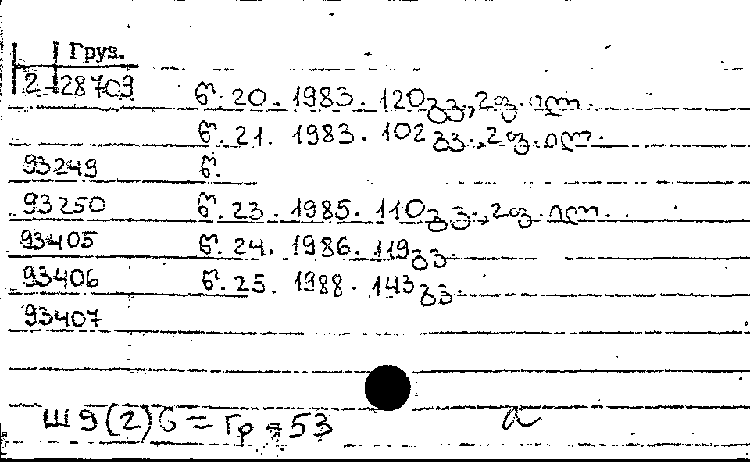 Груз.
2-28709 წ. 20. 1983. 120გვ., 2ფ. ილ.
წ. 21. 1983. 102გვ., 2ფ. ილ.
93249 წ.
93250 წ. 23. 1985. 110გვ., 2ფ. ილ.
93405 წ. 24. 1986. 119გვ.
93406 წ. 25. 1988. 143გვ.
93407
Ш9(2)6 = Гр
53
a